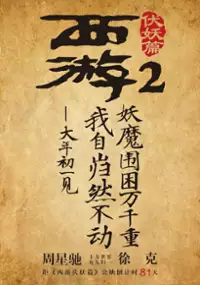 西游2
伏妖篇
妖魔围困万千重
我自岿然不动
—大年初一见
周星驰
徐克
距《西游伏妖篇》公映倒计时81天